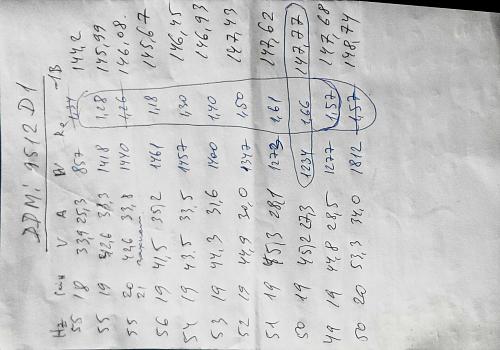 DDMi 9512 D1
Hz V A W -1В
55 18 33,9 25,3 857 144,2
55 19 42,6 1418 1,28 145,99
55 20 42,6 33,8 1440 1,26 146,08
21
56 19 41,5 35,2 1461 1,18 145,67
54 19 43,5 33,5 1457 1,30 146,45
53 19 44,3 31,6 1400 1,40 146,93
52 19 44,9 30,0 1347 1,50 147,43
51 19 45,3 28,1 1,61 147,62
50 19 45,2 27,3 1234 1,66 147,77
49 19 44,8 28,5 1277 1,57 147,68
50 20 53,3 34,0 1812 1,57 148,74